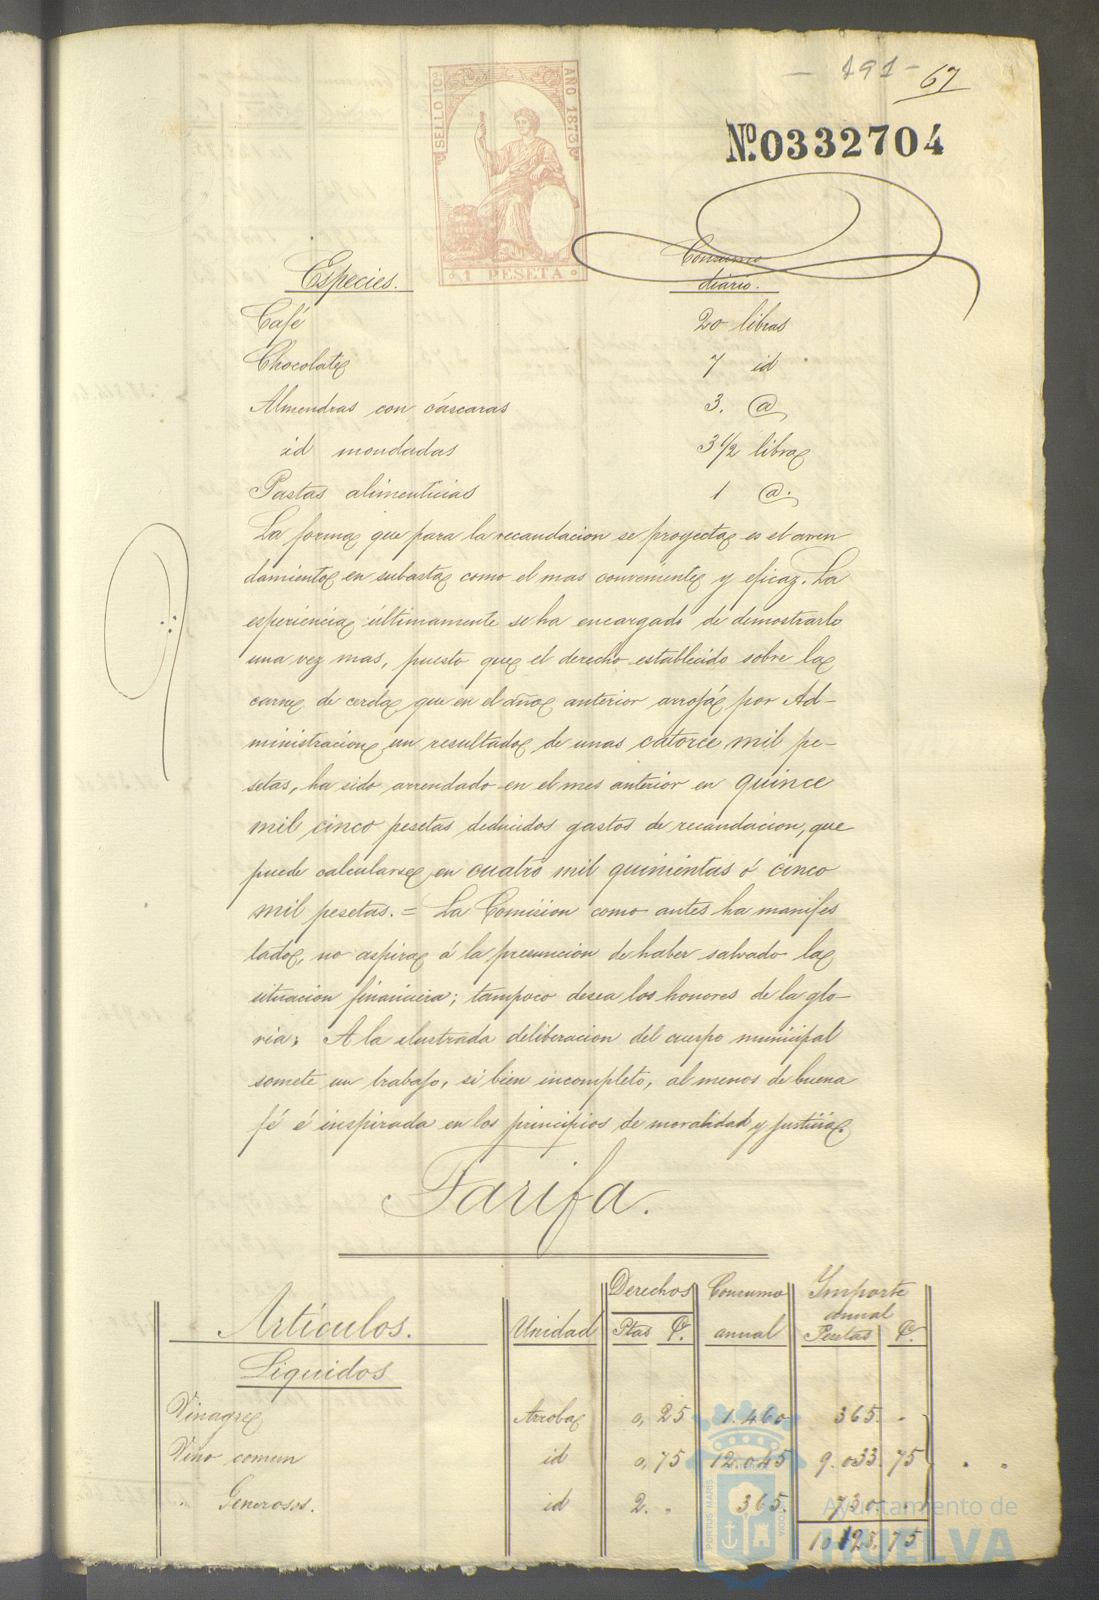 - 191 -
67
Nº 0332704
SELLO 10º
AÑO 1873
1 PESETA
Especies. Consumo diario.
Café 20 libras
Chocolate 7 id
Almendras con cáscaras 3. @
id mondadas 3 1/2 libra
Pastas alimenticias 1 @.
La forma que para la recaudacion se proyecta es el arren
damiento en subasta como el mas conveniente y eficaz. La
esperiencia últimamente se ha encargado de demostrarlo
una vez mas, puesto que el derecho establecido sobre la
carne de cerda que en el año anterior arrojó por Ad-
ministracion un resultado de unas catorce mil pe-
setas, ha sido arrendado en el mes anterior en quince
mil cinco pesetas deducidos gastos de recaudacion, que
puede calcularse en cuatro mil quinientas ó cinco
mil pesetas. = La Comision como antes ha manifes
tado, no aspira á la presuncion de haber salvado la
situacion financiera; tampoco desea los honores de la glo-
ria; A la ilustrada deliberacion del cuerpo municipal
somete un trabajo, si bien incompleto, al menos de buena
fé é inspirada en los principios de moralidad y justicia.
Tarifa.
Artículos. Unidad Derechos Ptas C. Consumo anual Importe anual Pesetas C.
Liquidos
Vinagre Arroba 0,25 1.460 365. -
Vino comun id 0,75 12.045 9.033.75
" Generosos. id 2. - 365. 730 -
10.128.75
PORTUS MARIS
CUSTODIA
Ayuntamiento de
HUELVA